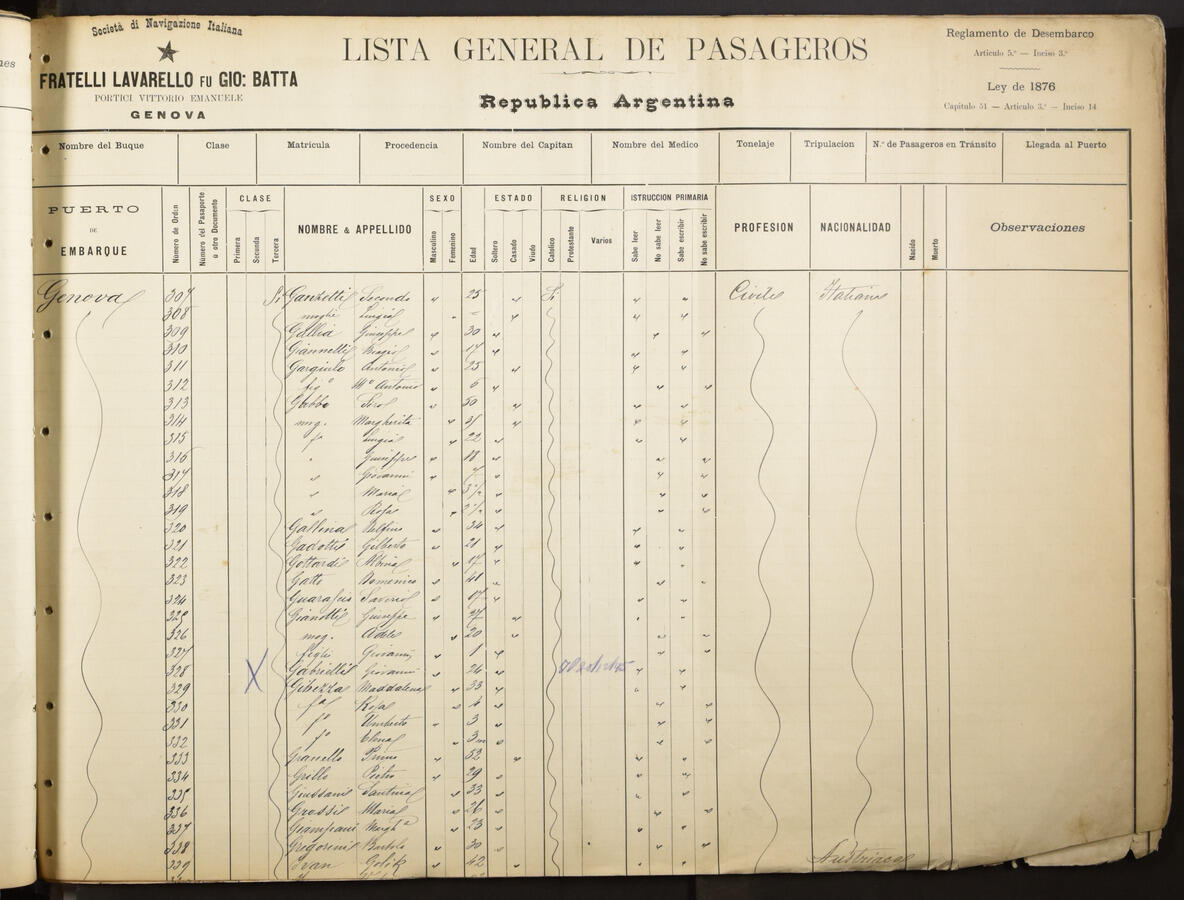 Società di Navigazione Italiana
FRATELLI LAVARELLO FU GIO: BATTA
PORTICI VITTORIO EMANUELE
GENOVA
LISTA GENERAL DE PASAGEROS
Republica Argentina
Reglamento de Desembarco
Articulo 5.º — Inciso 3.º
Ley de 1876
Capitulo 51 — Articulo 3.º — Inciso 14
Nombre del Buque Clase Matricula Procedencia Nombre del Capitan Nombre del Medico Tonelaje Tripulacion N.º de Pasageros en Tránsito Llegada al Puerto
PUERTO DE EMBARQUE
Número de Orden
Número del Pasaporte u otro Documento
CLASE
Primera
Segunda
Tercera
NOMBRE & APPELLIDO
SEXO
Masculino
Femenino
Edad
ESTADO
Soltero
Casado
Viudo
RELIGION
Catolico
Protestante
Varios
ISTRUCCION PRIMARIA
Sabe leer
No sabe leer
Sabe escribir
No sabe escribir
PROFESION
NACIONALIDAD
Nacido
Muerto
Observaciones
Genova 307 Si Secondo " 25 " Si " " Civile Italiana
308 moglie Luigia " " " "
309 Gallia Giuseppe " 30 " " "
310 Giannelli Biagio " 17 " " "
311 Gargiulo Antonio " 25 " " "
312 fig.º Antonio " 6 " " "
313 Gobbo " 50 " " "
314 mog. Margherita " 31 " " "
315 fª Luigia " 22 " " "
316 " Giuseppe " 18 " " "
317 " Giovanni " 7 " " "
318 " Maria " 3½ " " "
319 " Rosa " " " "
320 Gallina Delfino " 34 " " "
321 Gadotti Gilberto " 21 " " "
322 Gottardi Albina " 17 " " "
323 Gatto Domenico " 41 " " "
324 Saverio " 17 " " "
325 Gianotti Giuseppe " 27 " " "
326 mog. Adele " 20 " " "
327 figli Giovanni " 1 " " "
328 Gabrielli Giovanni " 24 " "
329 Gibezza Maddalena " 33 " " "
330 fª Rosa " 4 " " "
331 fº Umberto " 3 " " "
332 fª Elena " 3m " " "
333 Granello Primo " 52 " " "
334 Grillo Pietro " 29 " " "
335 Giussani Santina " 33 " " "
336 Grossi Maria " 26 " " "
337 Giampani Margh.ª " 23 " " "
338 Gregorini Bortolo " 30 " " "
339 Ivan " 42 " " " Austriaca